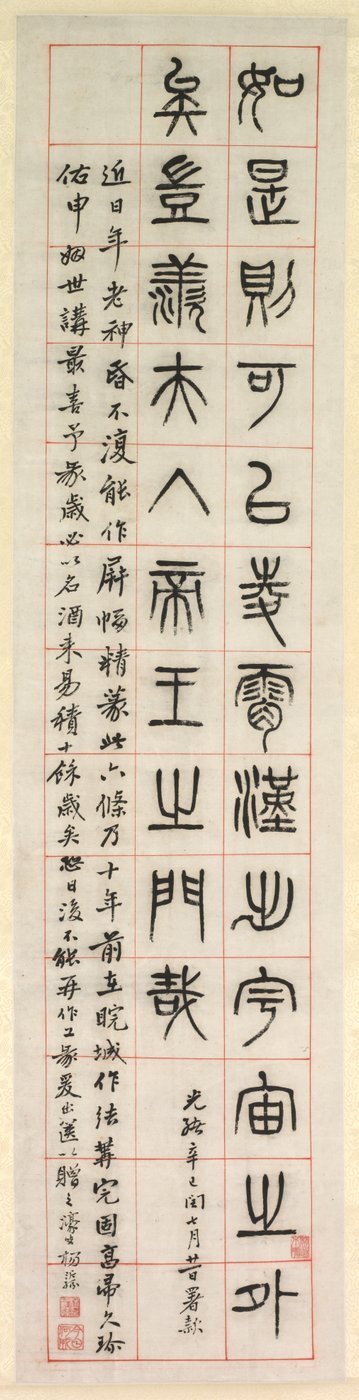 如是則可㠯夌霄漢出宇宙之外
矣豈羨夫入帝王之門哉
光緒辛巳閏七月廿日署款
近日年老神昏不復能作屏幅精篆此六條乃十年前在皖城作結構完固高帚久珍
佑申姻世講最喜予篆歲必以名酒来易積十餘歲矣恐日後不能再作工篆爰出篋以贈之濠叟楊沂孫